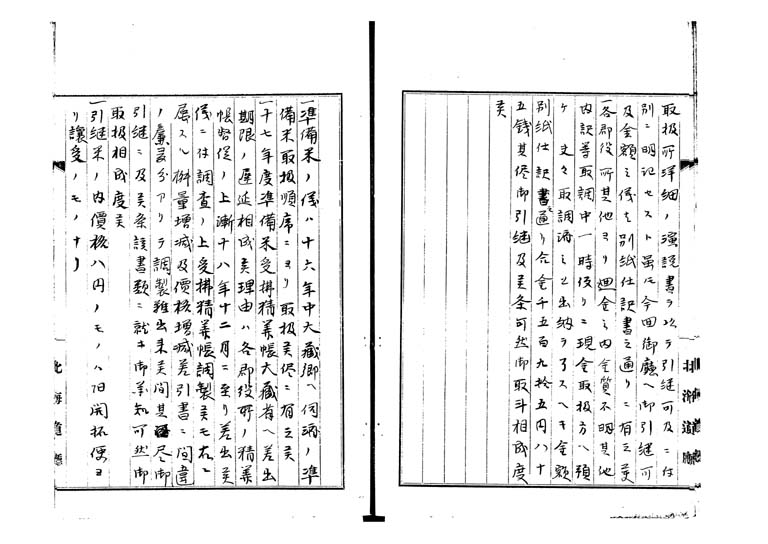 取扱所詳細ノ演説書ヲ以テ引継可及ニ付
別ニ明記セスト虽モ今回御廳ヘ御引継可
及金額之儀ハ別紙仕訳書之通リニ有之
一各郡役所其他ヨリ廻金之内金質不明其他
内訳等取調中一時後リニ現金取扱方ヘ預
ケ 追々取調済之上出納ヲ了スヘキ金額
別紙仕訳書之通リ合金千五百九拾五円八十
五銭其侭御引継及候条可然御取斗相成度
候
一準備米ノ儀ハ十六年中大藏卿ヘ伺済ノ準
備米取扱順席ニヨリ取扱候侭ニ有之候
一十七年度準備米受拂精算帳大藏省ヘ差出
期限ノ遅延相成候理由ハ各郡役所ノ精算
帳督促ノ上漸十八年十二月ニ至リ差出候
儀ニ付調査ノ上受拂精算帳調製候モ右ニ
属スル桝量増減及價格増減差引書ニ間違
ノ廉多分アリテ調製難出来候間其侭御
引継ニ及候条該書類ニ就キ御承知可然御
取扱相成度候
一引継米ノ内價格八円ノモノハ旧開拓使ヨ
リ讓受ノモノナリ
北海道廳
北海道廳